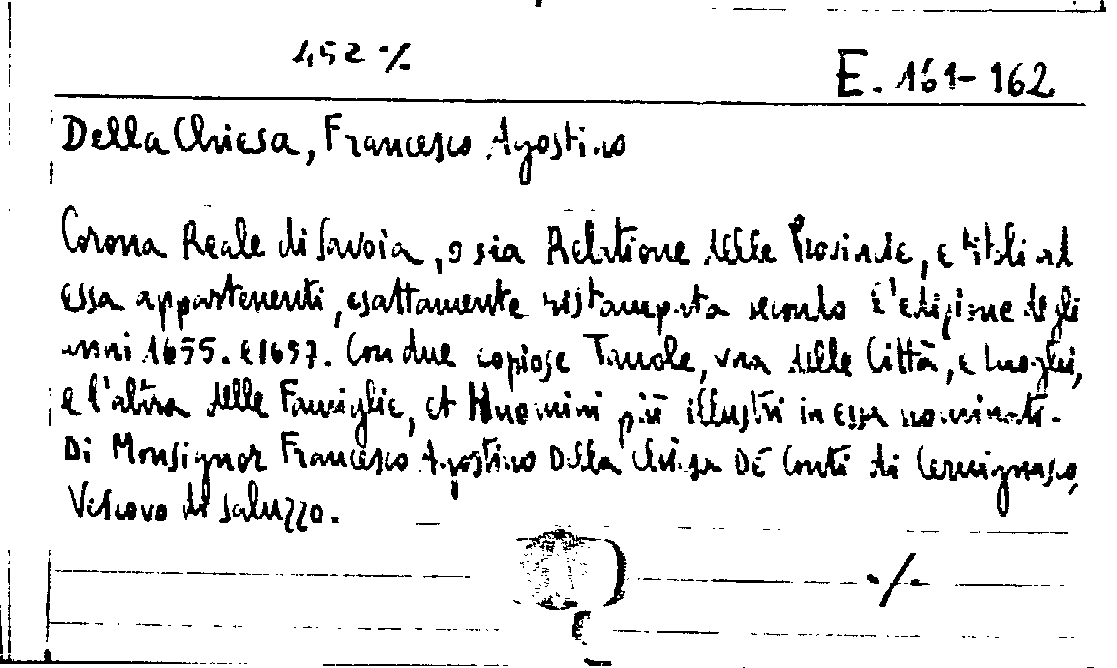 452 ·/.
E. 161-162
Della Chiesa, Francesco Agostino
Corona Reale di Savoia, o sia Relatione delle Provincie, e titoli ad
essa appartenenti, esattamente ristampata secondo l'edizione degli
anni 1655. e 1657. Con due copiose Tavole, una delle Città, e luoghi,
e l'altra delle Famiglie, et Huomini più illustri in essa nominati.
Di Monsignor Francesco Agostino Della Chiesa De Conti di Cervignasco,
Vescovo di Saluzzo.
·/.